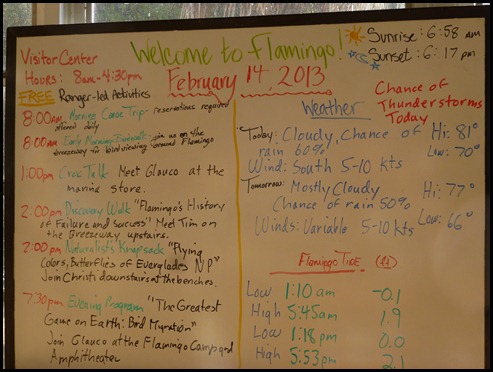 Welcome to Flamingo!
Sunrise: 6:58 AM
Sunset: 6:17 pm
Visitor Center
Hours: 8am-4:30pm
February 14, 2013
FREE Ranger-led Activities
8:00AM Morning Canoe Trip - reservations required
offered daily
8:00AM Early Morning Birdwalk - join us on the
breezeway for bird viewing around Flamingo
1:00pm Croc Talk Meet Glauco at the
marina store.
2:00pm Discovery Walk "Flamingo's History
of Failure and Success" Meet Tim on
the Breezeway upstairs.
2:00pm Naturalist's Knapsack "Flying
Colors, Butterflies of Everglades NP"
Join Christi downstairs at the benches.
7:30pm Evening Program "The Greatest
Game on Earth: Bird Migration"
Join Glauco at the Flamingo Campgrd
Amphitheater
Weather
Chance of
Thunderstorms
Today
Today: Cloudy, Chance of
rain 60%
Wind: South 5-10 kts
Hi: 81°
Low: 70°
Tomorrow: Mostly Cloudy
Chance of rain 50%
Winds: Variable 5-10 kts
Hi: 77°
Low: 66°
Flamingo Tide (ft)
Low 1:10 am -0.1
High 5:45am 1.9
Low 1:18 pm 0.0
High 5:53pm 2.1